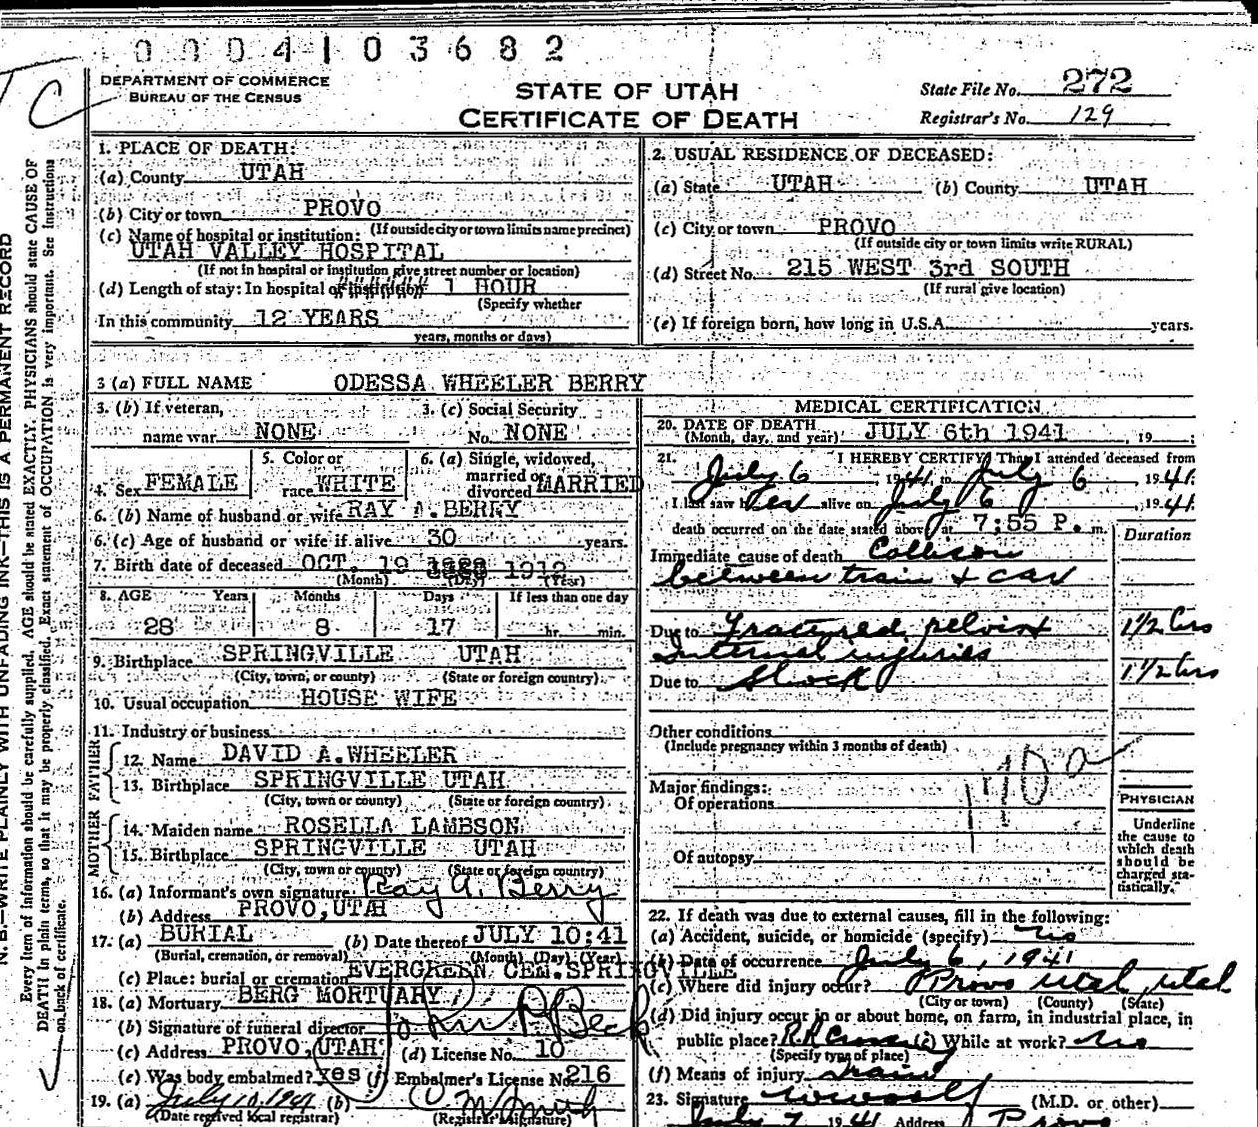 0004103682
DEPARTMENT OF COMMERCE
BUREAU OF THE CENSUS
STATE OF UTAH
CERTIFICATE OF DEATH
State File No. 272
Registrar's No. 129
N. B.—WRITE PLAINLY WITH UNFADING INK—THIS IS A PERMANENT RECORD
Every item of information should be carefully supplied. AGE should be stated EXACTLY. PHYSICIANS should state CAUSE OF
DEATH in plain terms, so that it may be properly classified. Exact statement of OCCUPATION is very important. See Instructions
on back of certificate.
1. PLACE OF DEATH:
(a) County UTAH
(b) City or town PROVO
(If outside city or town limits name precinct)
(c) Name of hospital or institution:
UTAH VALLEY HOSPITAL
(If not in hospital or institution give street number or location)
(d) Length of stay: In hospital or institution 1 HOUR
(Specify whether
In this community 12 YEARS
years, months or days)
2. USUAL RESIDENCE OF DECEASED:
(a) State UTAH (b) County UTAH
(c) City or town PROVO
(If outside city or town limits write RURAL)
(d) Street No. 215 WEST 3rd SOUTH
(If rural give location)
(e) If foreign born, how long in U.S.A. years.
3 (a) FULL NAME ODESSA WHEELER BERRY
3. (b) If veteran,
name war NONE
3. (c) Social Security
No. NONE
4. Sex FEMALE
5. Color or
race WHITE
6. (a) Single, widowed,
married or
divorced MARRIED
6. (b) Name of husband or wife RAY A. BERRY
6. (c) Age of husband or wife if alive 30 years.
7. Birth date of deceased OCT. 19 1912
(Month) (Day) (Year)
8. AGE Years Months Days If less than one day
28 8 17 hr. min.
9. Birthplace SPRINGVILLE UTAH
(City, town, or county) (State or foreign country)
10. Usual occupation HOUSE WIFE
11. Industry or business
FATHER
12. Name DAVID A. WHEELER
13. Birthplace SPRINGVILLE UTAH
(City, town or county) (State or foreign country)
MOTHER
14. Maiden name ROSELLA LAMBSON
15. Birthplace SPRINGVILLE UTAH
(City, town or county) (State or foreign country)
16. (a) Informant's own signature Ray A. Berry
(b) Address PROVO, UTAH
17. (a) BURIAL (b) Date thereof JULY 10:41
(Burial, cremation, or removal) (Month) (Day) (Year)
(c) Place: burial or cremation EVERGREEN CEM. SPRINGVILLE
18. (a) Mortuary BERG MORTUARY
(b) Signature of funeral director
(c) Address PROVO, UTAH (d) License No. 10
(e) Was body embalmed? yes (f) Embalmer's License No. 216
19. (a) July 10, 1941 (b)
(Date received local registrar) (Registrar's signature)
MEDICAL CERTIFICATION
20. DATE OF DEATH
(Month, day, and year) JULY 6th 1941, 19 ;
21. I HEREBY CERTIFY, That I attended deceased from
July 6, 1941 to July 6, 1941
I last saw her alive on July 6, 1941
death occurred on the date stated above at 7:55 P. m.
Duration
Immediate cause of death Collison
between train & car
Due to Fractured pelvis & 1 1/2 hrs
internal injuries
Due to Shock 1 1/2 hrs
Other conditions
(Include pregnancy within 3 months of death)
170a
Major findings:
Of operations
Of autopsy
PHYSICIAN
Underline
the cause to
which death
should be
charged sta-
tistically.
22. If death was due to external causes, fill in the following:
(a) Accident, suicide, or homicide (specify)
(b) Date of occurrence July 6, 1941
(c) Where did injury occur? Provo Utah, Utah
(City or town) (County) (State)
(d) Did injury occur in or about home, on farm, in industrial place, in
public place? R.R Crossing (e) While at work? No
(Specify type of place)
(f) Means of injury train
23. Signature (M.D. or other)
July 7 1941 Address Provo